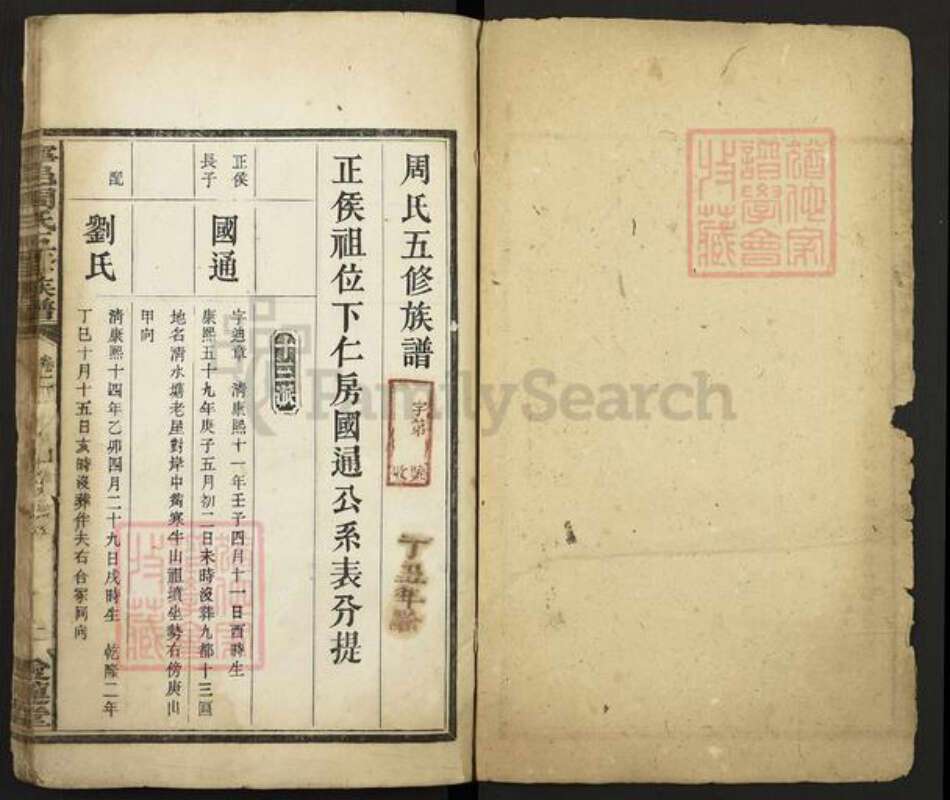 周氏五修族譜
字第
號
收
丁丑年
正侯祖位下仁房國通公系表分提
十三派
正侯
長子
國通
字迪章 清康熙十一年壬子四月十一日酉時生
康熙五十九年庚子五月初二日未時沒葬九都十三區
地名清水塘老屋對岸中舊寒牛山祖墳坐勢右傍庚山
甲向
配
劉氏
清康熙十四年乙卯四月二十九日戌時生 乾隆二年
丁巳十月十五日亥時沒葬伴夫右台冢同向
周氏五修族譜
卷二
家
譜學會
收藏
收藏
FamilySearch